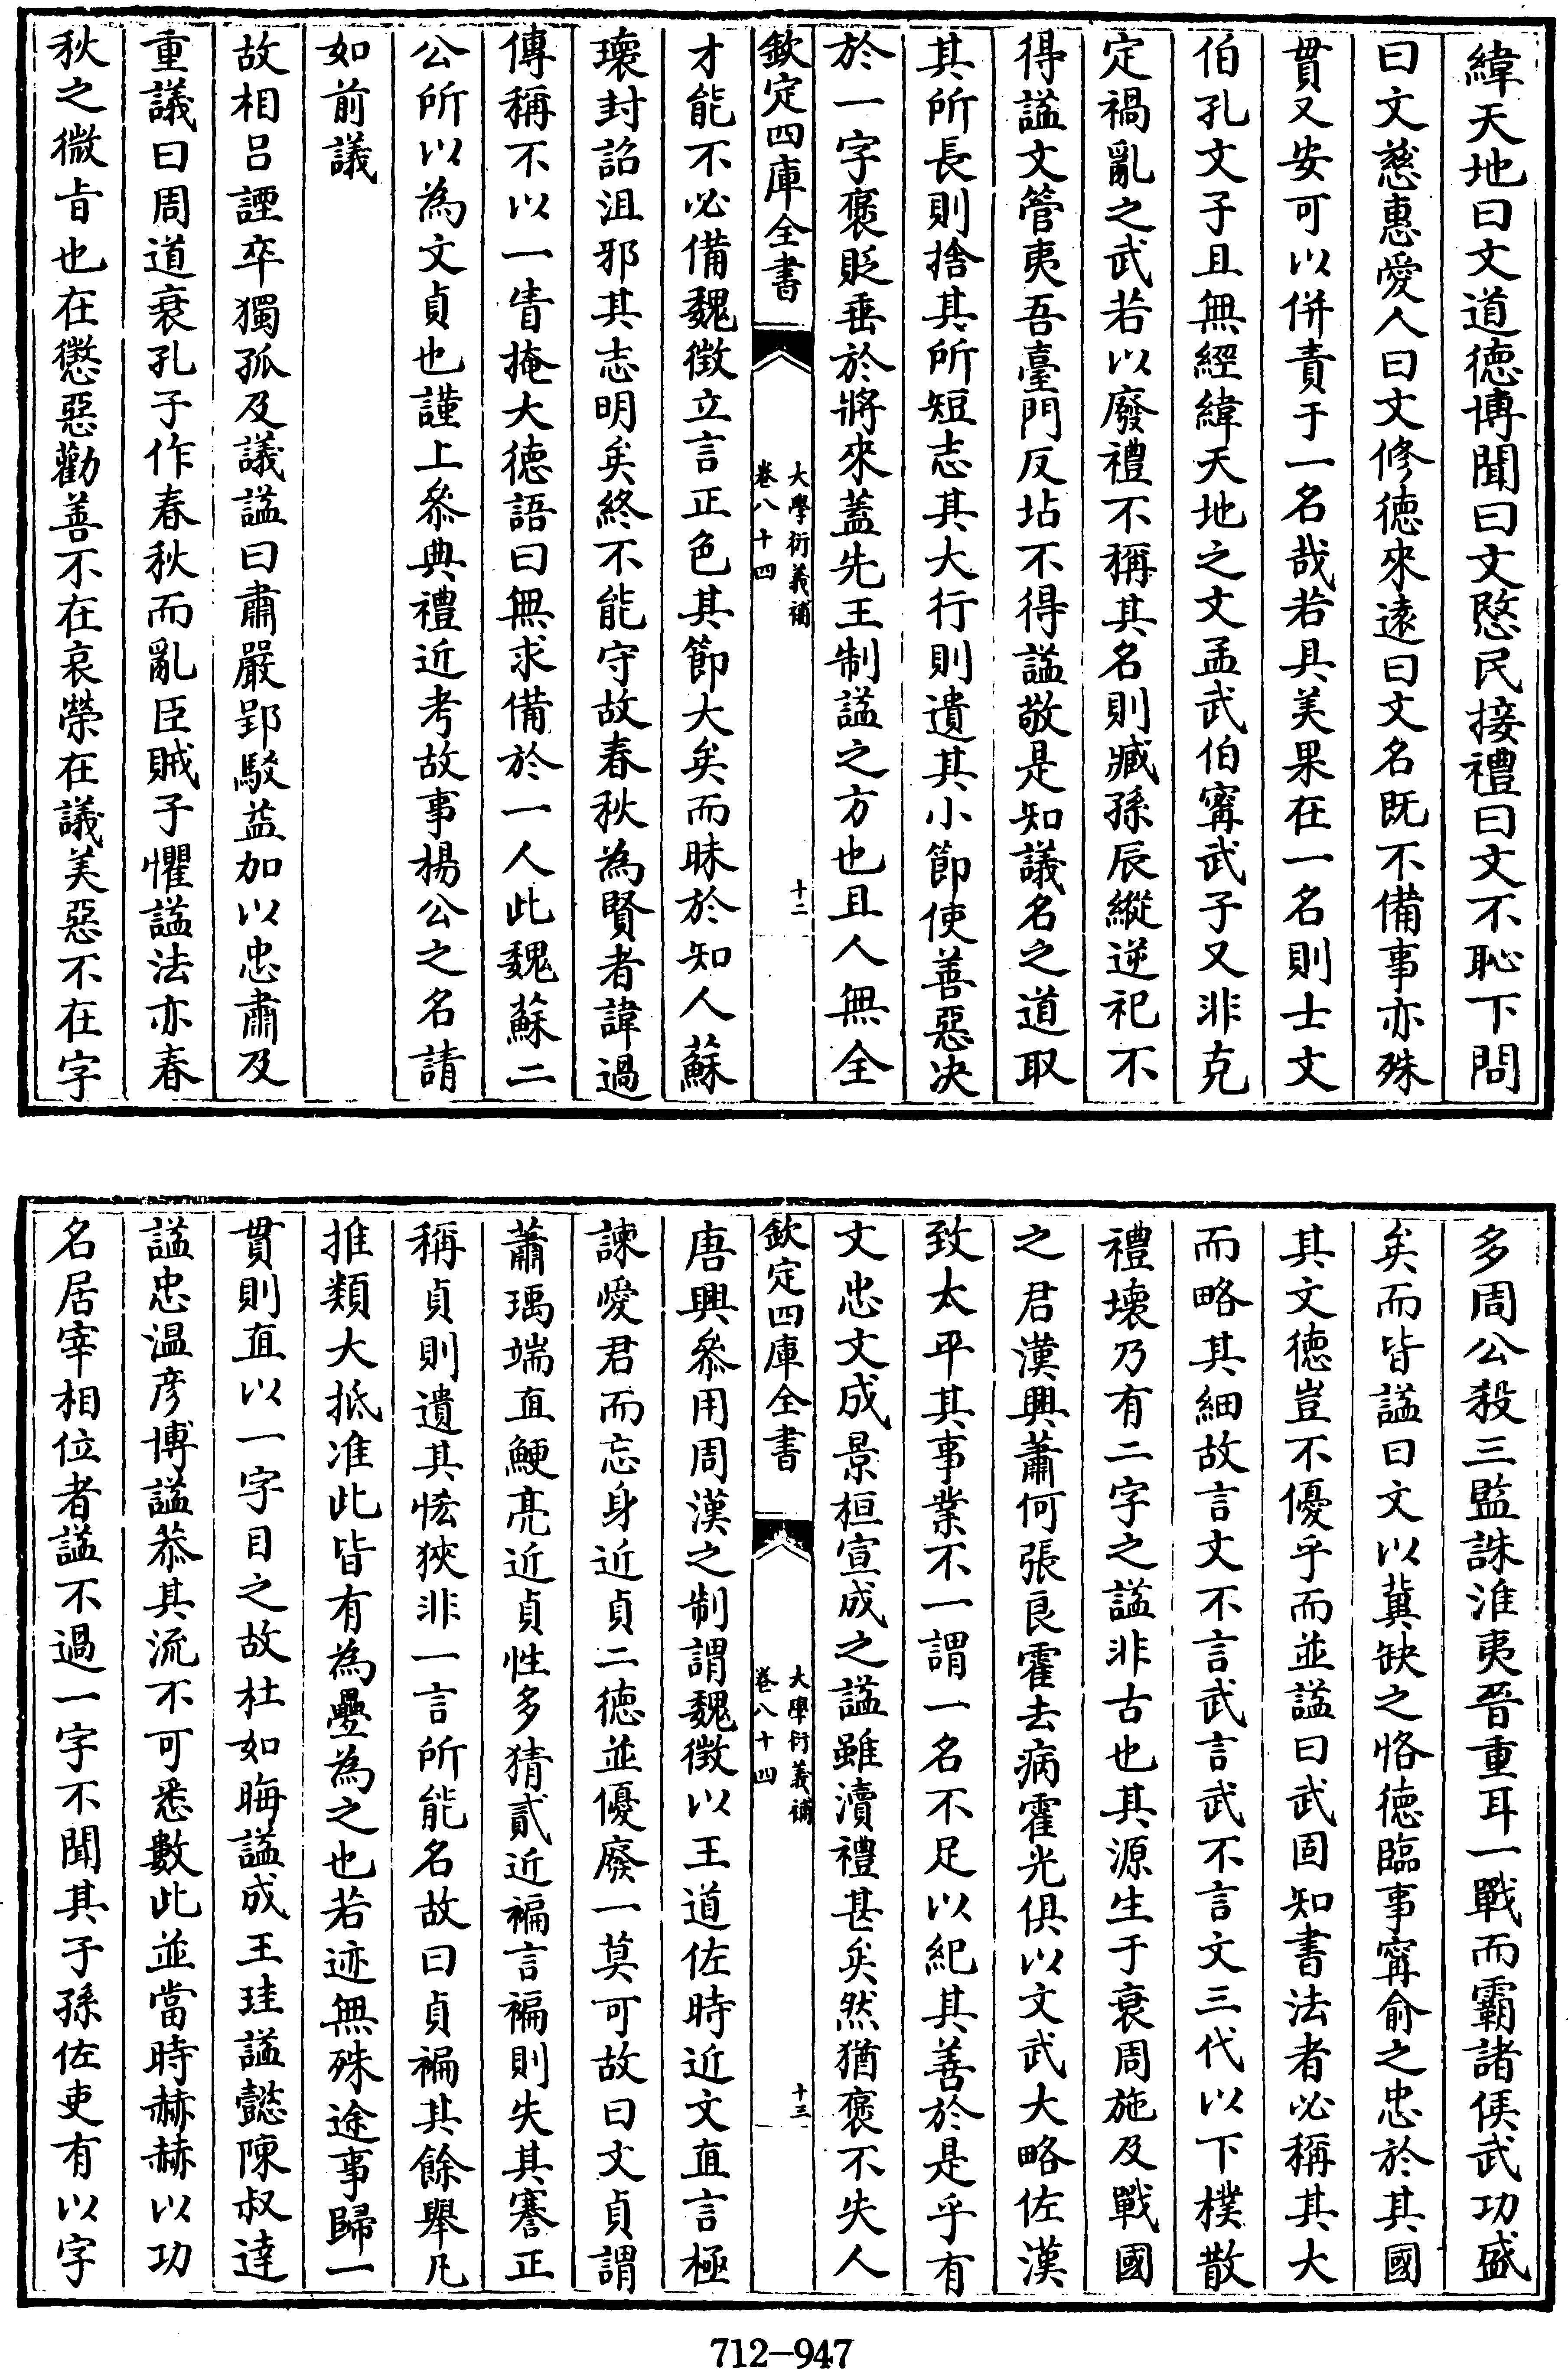 緯天地曰文道德博聞曰文愍民接禮曰文不恥下問
曰文慈惠愛人曰文修德來遠曰文名既不備事亦殊
貫又安可以併責于一名哉若具美果在一名則士文
伯孔文子且無經緯天地之文孟武伯甯武子又非克
定禍亂之武若以廢禮不稱其名則臧孫辰縱逆祀不
得謚文管夷吾臺門反坫不得謚敬是知議名之道取
其所長則捨其所短志其大行則遺其小節使善惡決
於一字褒貶垂於將來蓋先王制謚之方也且人無全
欽定四庫全書
大學衍義補
卷八十四
十二
才能不必備魏徵立言正色其節大矣而昧於知人蘇
瓌封詔沮邪其志明矣終不能守故春秋為賢者諱過
傳稱不以一眚掩大德語曰無求備於一人此魏蘇二
公所以為文貞也謹上叅典禮近考故事楊公之名請
如前議
故相呂諲卒獨孤及議謚曰肅嚴郢駮益加以忠肅及
重議曰周道衰孔子作春秋而亂臣賊子懼謚法亦春
秋之微旨也在懲惡勸善不在哀榮在議美惡不在字
多周公殺三監誅淮夷晉重耳一戰而霸諸侯武功盛
矣而皆謚曰文以冀缺之恪德臨事甯俞之忠於其國
其文德豈不優乎而並謚曰武固知書法者必稱其大
而略其細故言文不言武言武不言文三代以下樸散
禮壞乃有二字之謚非古也其源生于衰周施及戰國
之君漢興蕭何張良霍去病霍光俱以文武大略佐漢
致太平其事業不一謂一名不足以紀其善於是乎有
文忠文成景桓宣成之謚雖瀆禮甚矣然猶褒不失人
欽定四庫全書
大學衍義補
卷八十四
十三
唐興叅用周漢之制謂魏徵以王道佐時近文直言極
諫愛君而忘身近貞二德並優廢一莫可故曰文貞謂
蕭瑀端直鯁亮近貞性多猜貳近褊言褊則失其謇正
稱貞則遺其恡狹非一言所能名故曰貞褊其餘舉凡
推類大抵准此皆有為疊為之也若迹無殊途事歸一
貫則直以一字目之故杜如晦謚成王珪謚懿陳叔達
謚忠温彦博謚恭其流不可悉數此並當時赫赫以功
名居宰相位者謚不過一字不聞其子孫佐吏有以字
712-947